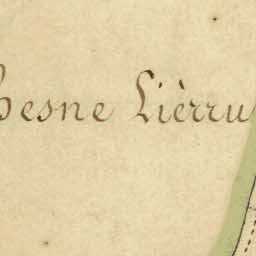 hesne Lièrru